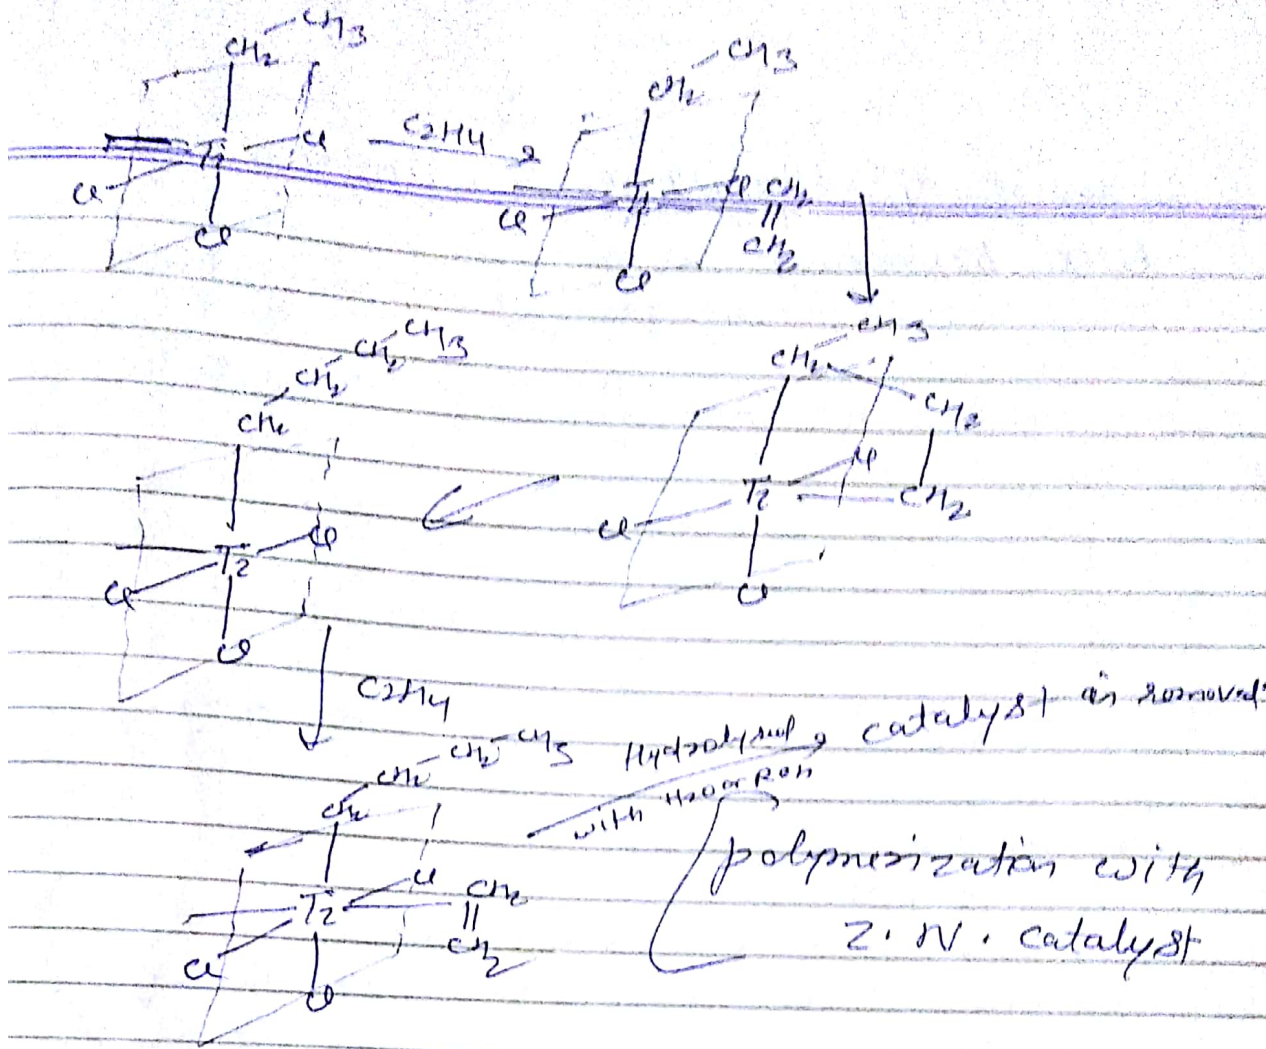 CH3
CH2
Ti Cl
Cl
Cl
C2H4
CH3
CH2
Ti Cl CH2
Cl || CH2
Cl
CH3
CH2
CH2
Ti Cl
Cl CH2
Cl
CH3
CH2
CH2
CH2
Ti Cl
Cl
Cl
C2H4
CH2 CH3
CH2
CH2
Ti Cl CH2
Cl || CH2
Cl
catalyst is removed
with H2O or ROH
polymerization with
Z. N. catalyst